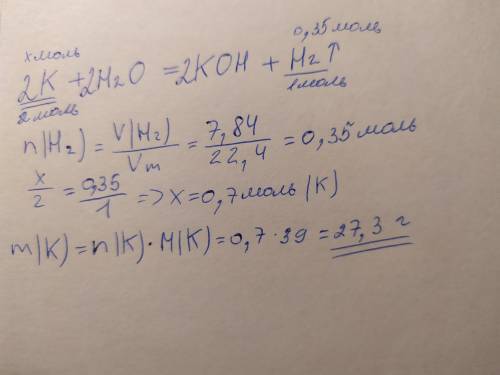 x моль 0,35 моль
2K + 2H₂O = 2KOH + H₂↑
2 моль 1 моль
n(H₂) = V(H₂)/Vm = 7,84/22,4 = 0,35 моль
x/2 = 0,35/1 => x = 0,7 моль (K)
m(K) = n(K) · M(K) = 0,7 · 39 = 27,3 г